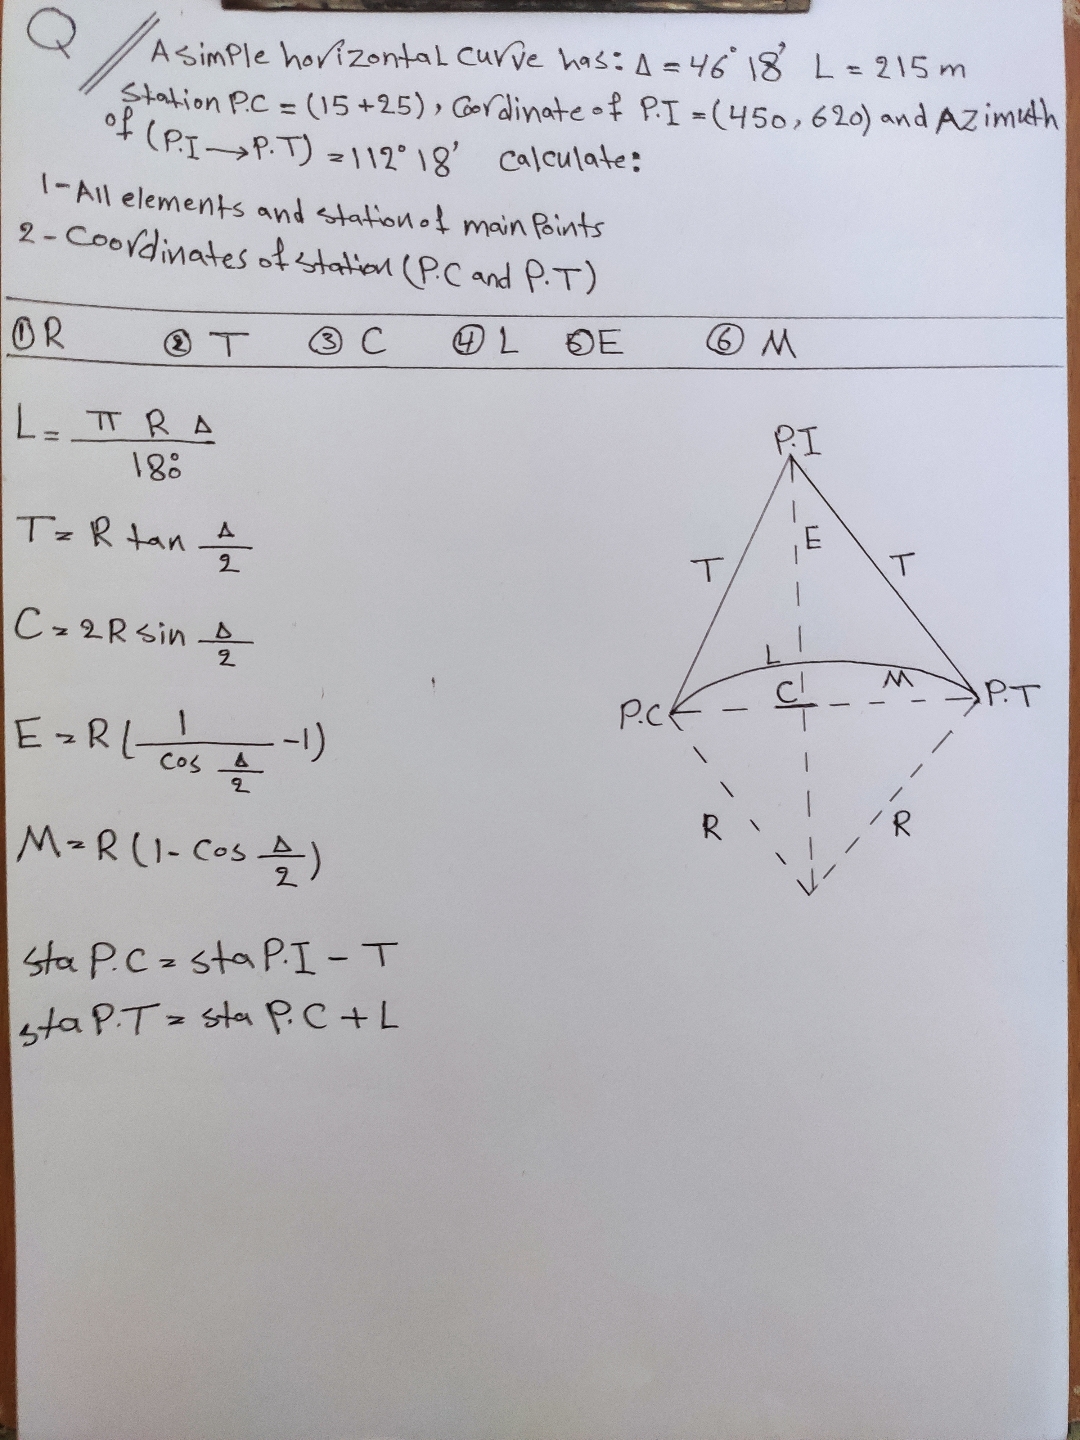 Q
A simple horizontal curve has: Δ = 46° 18' L = 215 m
Station P.C = (15+25), Coordinate of P.I = (450, 620) and Azimuth
of (P.I → P.T) = 112° 18' calculate:
1- All elements and station of main Points
2- Coordinates of station (P.C and P.T)
① R ② T ③ C ④ L ⑤ E ⑥ M
L = π R Δ / 180
T = R tan Δ/2
C = 2R sin Δ/2
E = R (1 / cos Δ/2 - 1)
M = R (1 - cos Δ/2)
sta P.C = sta P.I - T
sta P.T = sta P.C + L
P.I
E
T T
L
C M
P.C P.T
R R